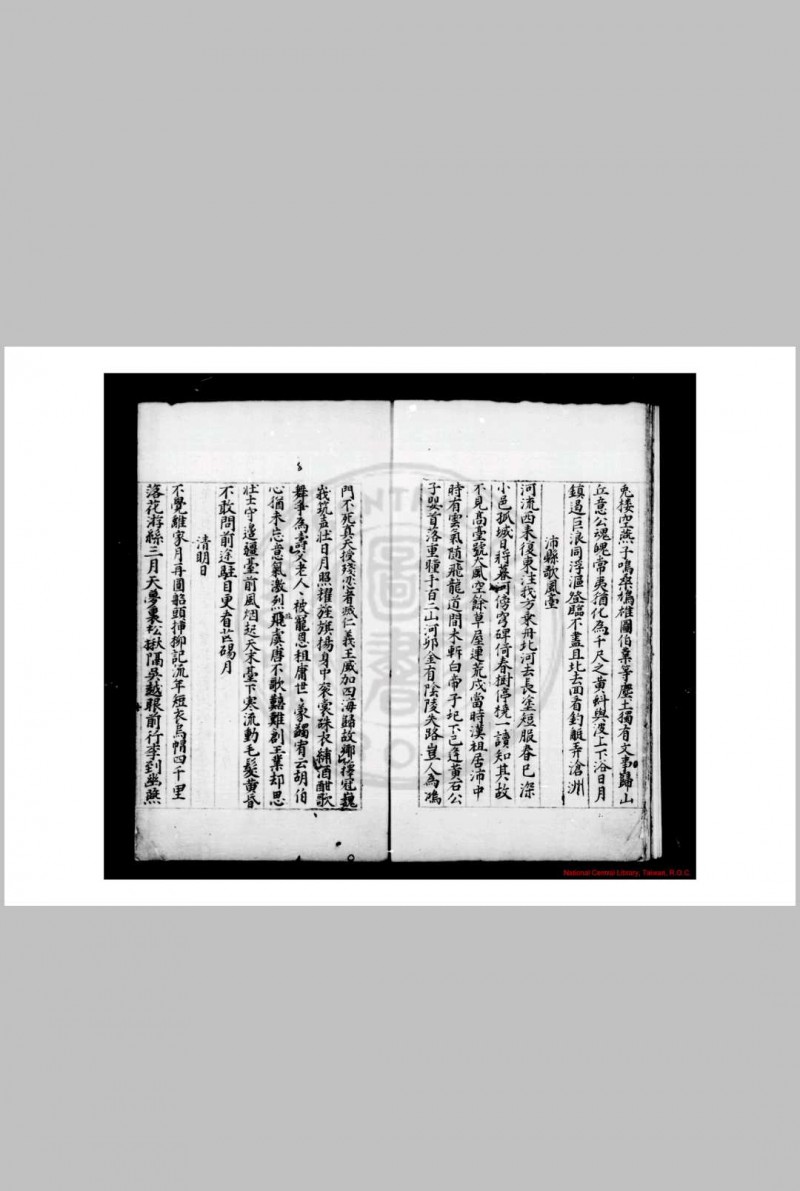 兎楼空燕子鳴梁鳩雄圖伯業等塵土獨有文章歸山
丘意公魂魄常夷猶化為千尺之黃㪷與波上下浴日月
鎮過巨浪同浮漚登臨不盡且北去回看釣艇弄滄洲
沛縣歌風臺
河流西来復東注我方乗舟北河去長塗短服春已深
小邑孤城日将暮河傍穹碑倚春樹停橈一讀知其故
不見髙臺號大風空餘草屋連荒戍當時漢祖居沛中
時有雲氣随飛龍道間未斬白帝子圯下已逢黃石公
子嬰首落重瞳手百二山河卯金有陰陵失路豈人為鴻
門不死真天授殘忍者滅仁義王威加四海歸故鄉釋冠巍
峩筑孟壮日月照耀旌旗揚身中衮裳硃衣繡酒酣歌
舞爭為壽父老人人被寵恩租庸世世蒙蠲宥云胡伯
心猶未忘意氣激烈飛虞唐不歌囏難創王業却思
壮士守邊疆臺前風烟起天末臺下寒流動毛髮黄昏
不敢問前途駐目更看芒碭月
清明日
不覺離家月再圓船頭挿柳記流年短衣烏㡌四千里
落花游絲三月天夢裏松楸隔吳越眼前行李到幽燕
National Central Library, Taiwan, R.O.C.